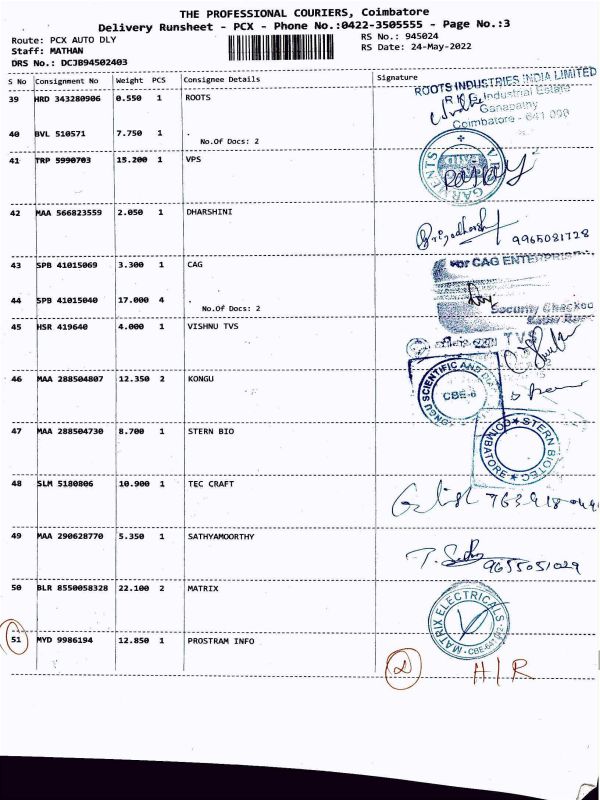 THE PROFESSIONAL COURIERS, Coimbatore
Delivery Runsheet - PCX - Phone No.:0422-3505555 - Page No.:3
Route: PCX AUTO DLY RS No.: 945024
Staff: MATHAN RS Date: 24-May-2022
DRS No.: DCJB94502403
S No Consignment No Weight PCS Consignee Details Signature
ROOTS INDUSTRIES INDIA LIMITED
39 HRD 343280906 0.550 1 ROOTS
Industrial Estate
Ganapathy
Coimbatore - 641 006
40 BVL 510571 7.750 1 .
No.Of Docs: 2
41 TRP 5990703 15.200 1 VPS
GARMENTS
42 MAA 566823559 2.050 1 DHARSHINI
9965081728
43 SPB 41015069 3.300 1 CAG
For CAG ENTERPRISE
44 SPB 41015040 17.000 4 .
No.Of Docs: 2
Security Checked
45 HSR 419640 4.000 1 VISHNU TVS
TVS
46 MAA 288504807 12.350 2 KONGU
KONGU SCIENTIFIC AND
CBE-6
47 MAA 288504730 8.700 1 STERN BIO
STERN BIOTEC
COIMBATORE
48 SLM 5180806 10.900 1 TEC CRAFT
49 MAA 290628770 5.350 1 SATHYAMOORTHY
9655051029
50 BLR 8550058328 22.100 2 MATRIX
MATRIX ELECTRICALS
51 MYD 9986194 12.850 1 PROSTRAM INFO
H/R